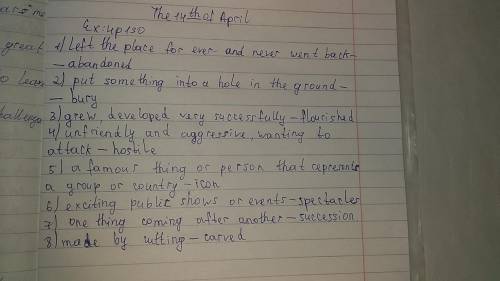 ars me
great
o lear
challenge
The 14th of April
Ex: 4p130
1) Left the place for ever and never went back-
- abandoned
2) put something into a hole in the ground-
- bury
3) grew, developed very successfully - flourished
4) unfriendly and aggressive, wanting to
attack - hostile
5) a famous thing or person that represents
a group or country - icon
6) exciting public shows or events - spectacles
7) one thing coming after another - succession
8) made by cutting - carved